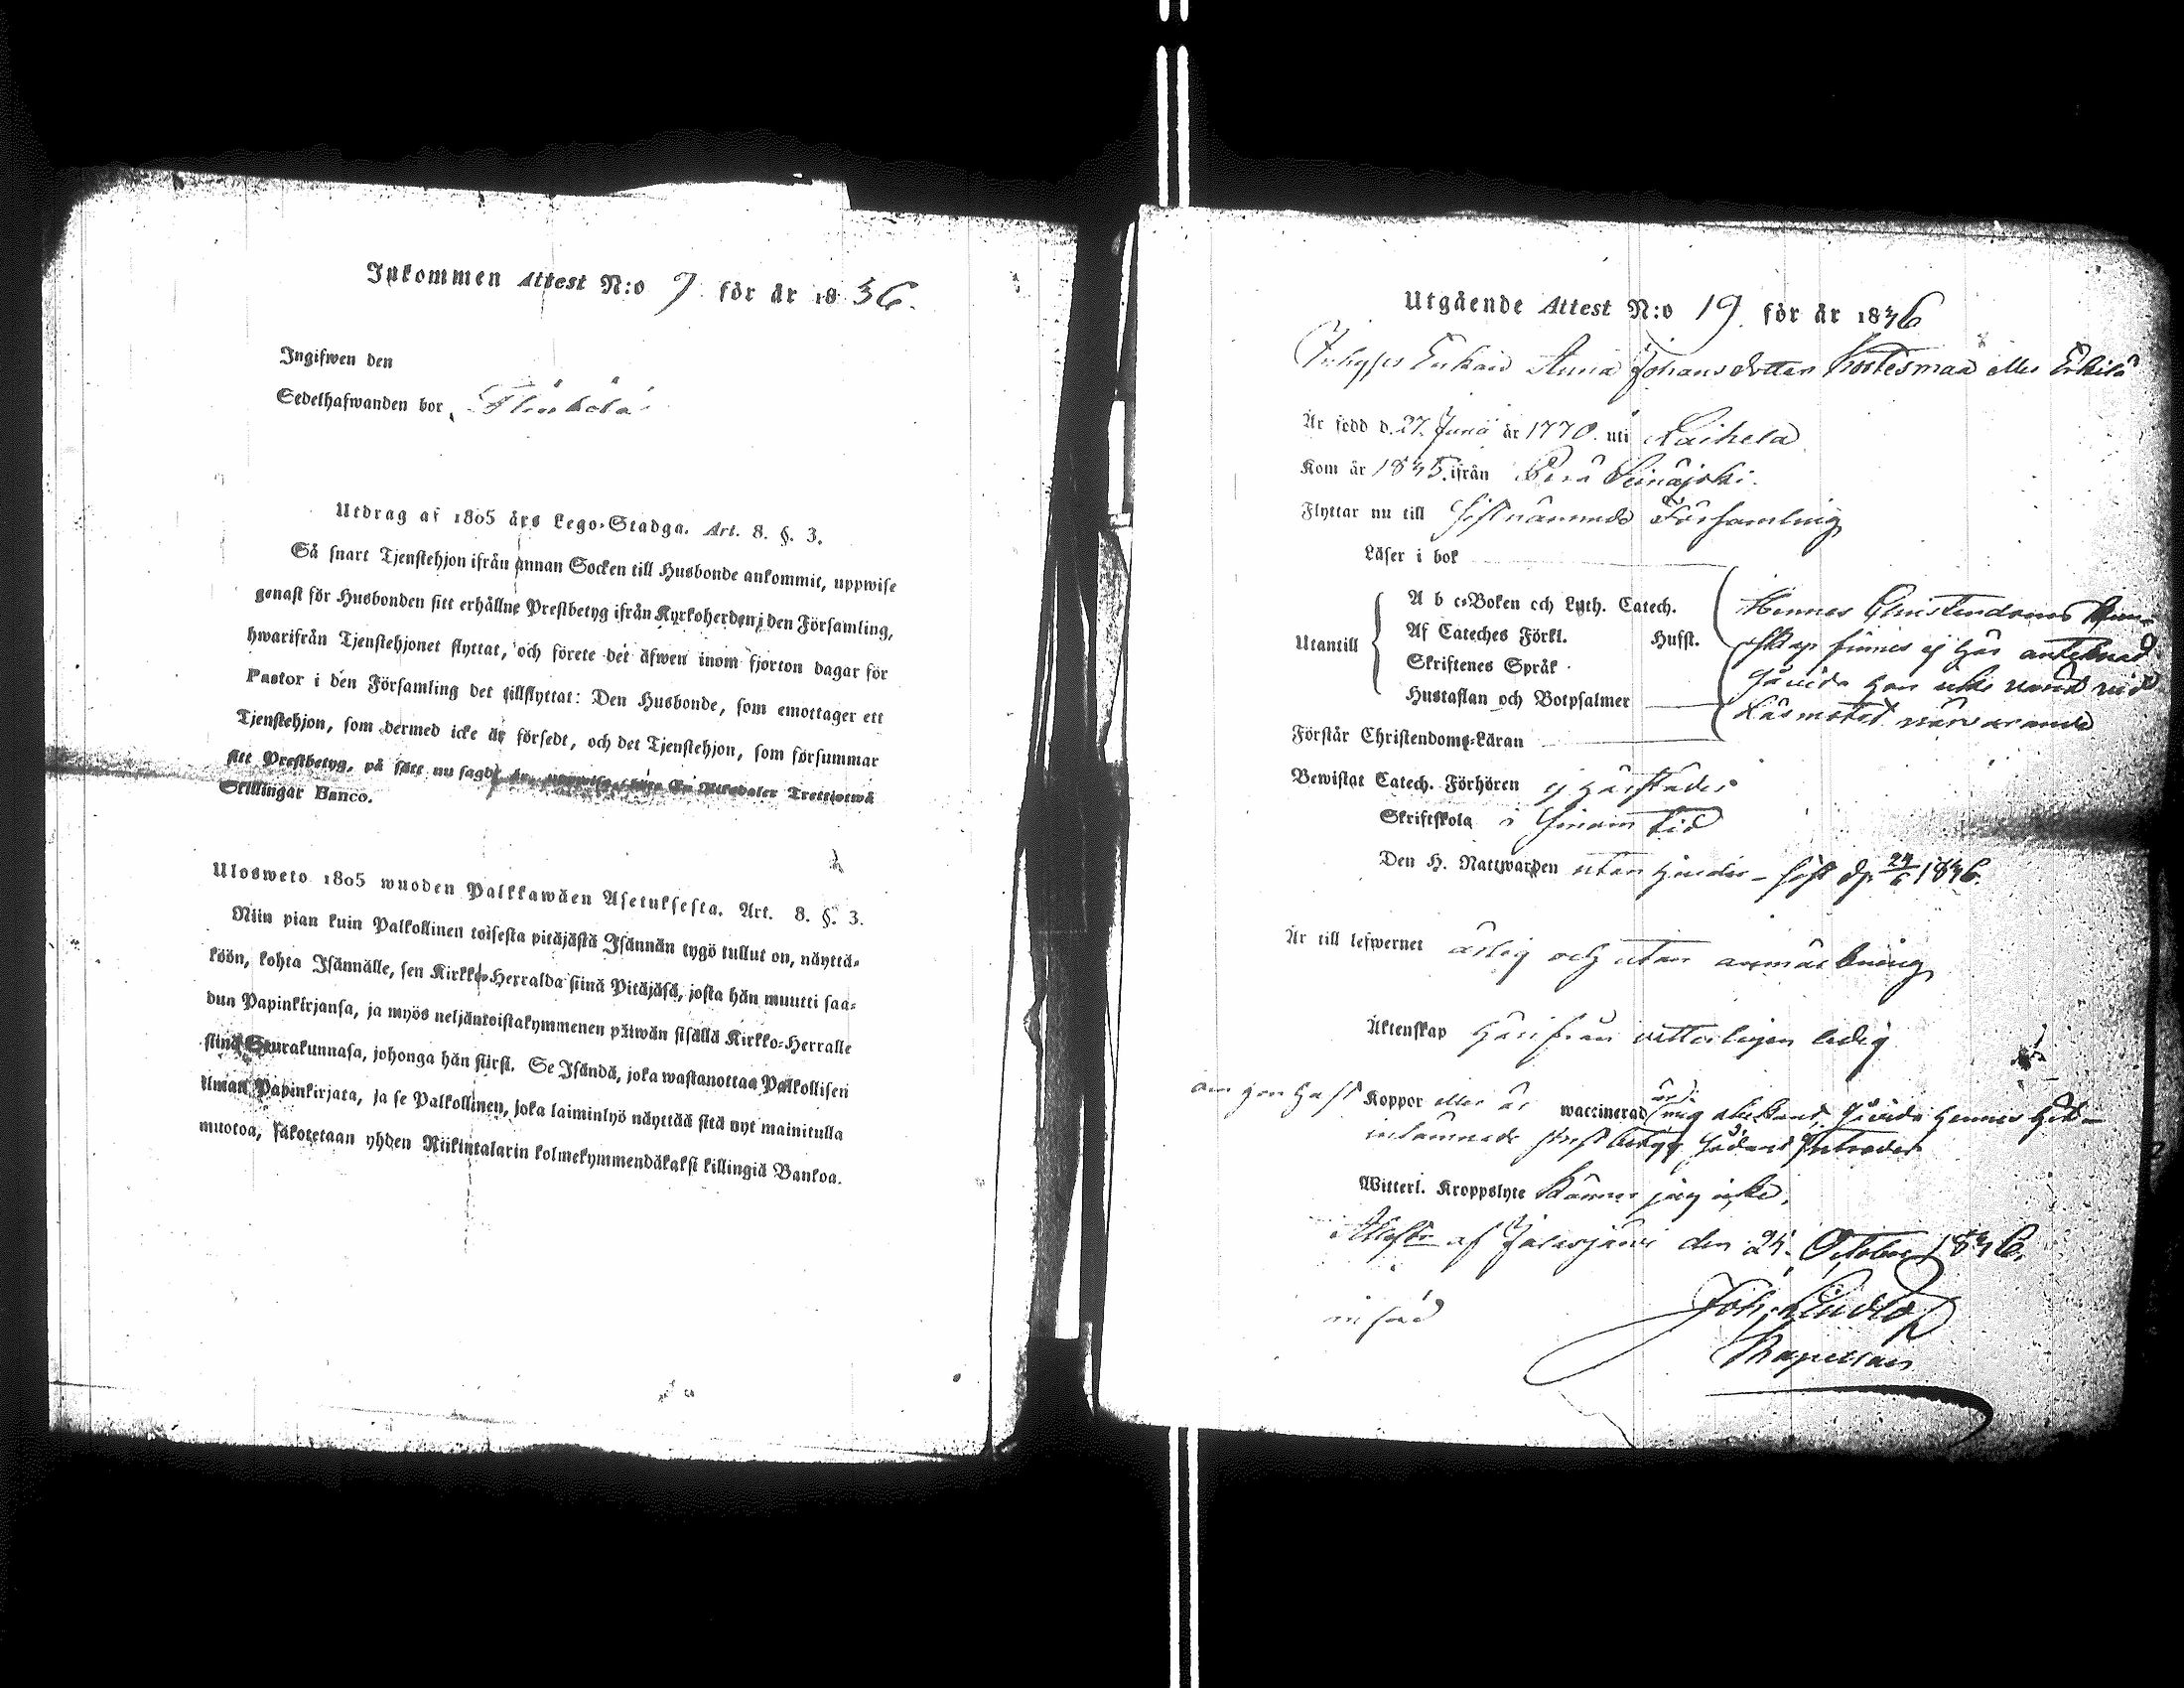 Inkommen Attest N:o 7. för år 1836.
Ingifwen den
Sedelhafwanden bor
Utdrag af 1805 års Lego-Stadga. Art. 8. §. 3.
Så snart Tjenstehjon ifrån annan Socken till Husbonde ankommit, uppwise
genast för Husbonden sitt erhållne Prestbetyg ifrån Kyrkoherden i den Församling,
hwarifrån Tjenstehjonet flyttat, och förete det äfwen inom fjorton dagar för
Pastor i den Församling det tillflyttat: Den Husbonde, som emottager ett
Tjenstehjon, som dermed icke är försedt, och det Tjenstehjon, som försummar
sitt Prestbetyg, på sätt nu sagdt är, uppwisa, böte En Riksdaler Trettiotwå
Skillingar Banco.
Ulosweto 1805 wuoden Palkkawäen Asetuksesta. Art. 8. §. 3.
Niin pian kuin Palkollinen toisesta pitäjästä Isännän tygö tullut on, näyttä-
köön, kohta Isännälle, sen Kirkko-Herralda siinä Pitäjäsä, josta hän muutti saa-
dun Papinkirjansa, ja myös neljäntoistakymmenen päiwän sisällä Kirkko-Herralle
siinä Seurakunnasa, johonga hän siirsi. Se Isändä, joka wastanottaa Palkollisen
ilman Papinkirjata, ja se Palkollinen, joka laiminlyö näyttää sitä nyt mainitulla
muotoa, sakotetaan yhden Riikintalarin kolmekymmendäkaksi killingiä Bankoa.
Utgående Attest N:o 19. för år 1836
Enkan Anna Johansdotter Koskesmaa eller Erkilä
Är född d. 27. Junii år 1770. uti Laihela
Kom år 1835. ifrån Perä Seinäjoki.
Flyttar nu till sistnämnde Församling
Läser i bok
A b c-Boken och Luth. Catech.
Utantill Af Cateches Förkl. Husfl.
Skriftenes Språk
Hustaflan och Botpsalmer
Hennes Christendoms kun-
skap finnes ej här antecknad
såvida hon icke varit vid
Läsmötet närvarande
Förstår Christendoms-Läran
Bewistat Catech. Förhören ej härstädes
Skriftskola i sinom tid
Den H. Nattwarden utan hinder - sist d. 24/6 1836.
Är till lefwernet ärlig och utan anmärkning
Äktenskap härifrån vitterligen ledig
om hon haft Koppor eller är waccinerad är mig obekant, såvida hennes hit-
inlämnade prestbetyg sådant
Witterl. Kroppslyte känner jag icke.
af Jalasjärvi den 24. October 1836.
Joh. Lindlöf
Kapellan